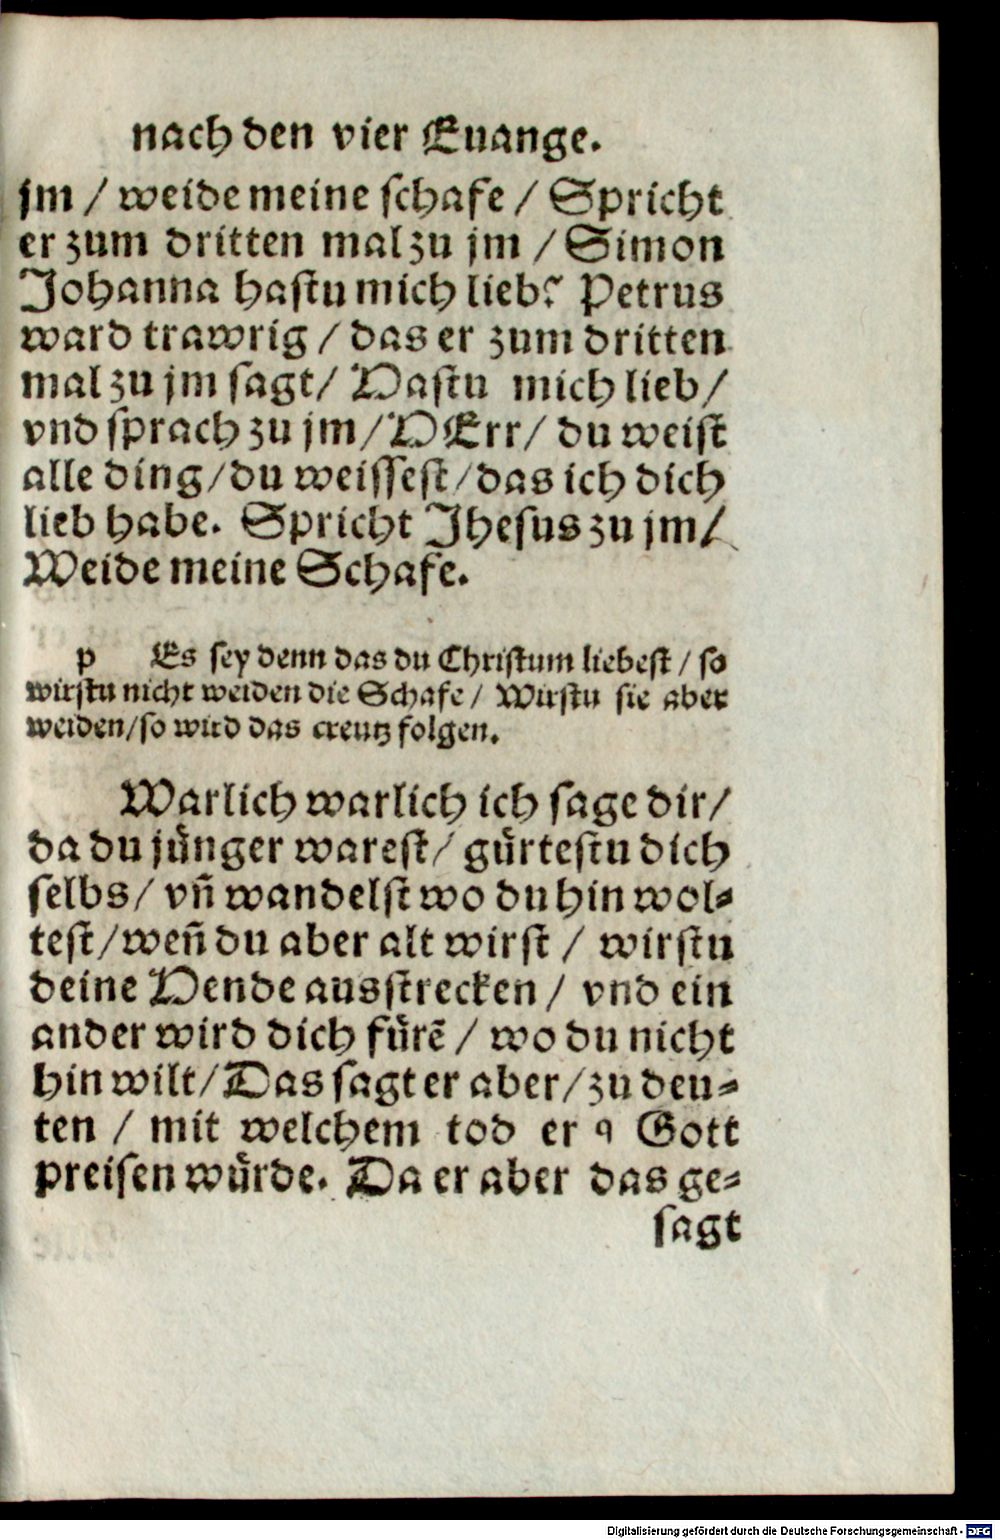 nach den vier Euange.
jm / weide meine schafe / Spricht
er zum dritten mal zu jm / Simon
Johanna hastu mich lieb? Petrus
ward trawrig / das er zum dritten
mal zu jm sagt / Hastu mich lieb /
vnd sprach zu jm / HErr / du weist
alle ding / du weissest / das ich dich
lieb habe. Spricht Jhesus zu jm /
Weide meine Schafe.
p Es sey denn das du Christum liebest / so
wirstu nicht weiden die Schafe / Wirstu sie aber
weiden / so wird das creutz folgen.
Warlich warlich ich sage dir /
da du jünger warest / gürtestu dich
selbs / vñ wandelst wo du hin wol=
test / weñ du aber alt wirst / wirstu
deine Hende ausstrecken / vnd ein
ander wird dich fürē / wo du nicht
hin wilt / Das sagt er aber / zu deu=
ten / mit welchem tod er q Gott
preisen würde. Da er aber das ge=
sagt
Digitalisierung gefördert durch die Deutsche Forschungsgemeinschaft - DFG